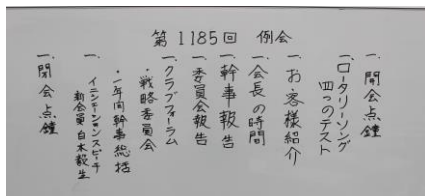 第1185回 例会
一.開会点鐘
一.ロータリーソング
四つのテスト
一.お客様紹介
一.会長の時間
一.幹事報告
一.委員会報告
一.クラブフォーラム
・戦略委員会
・一年間幹事総括
一.イニシエーションスピーチ
新会員 白木毅生
一.閉会点鐘